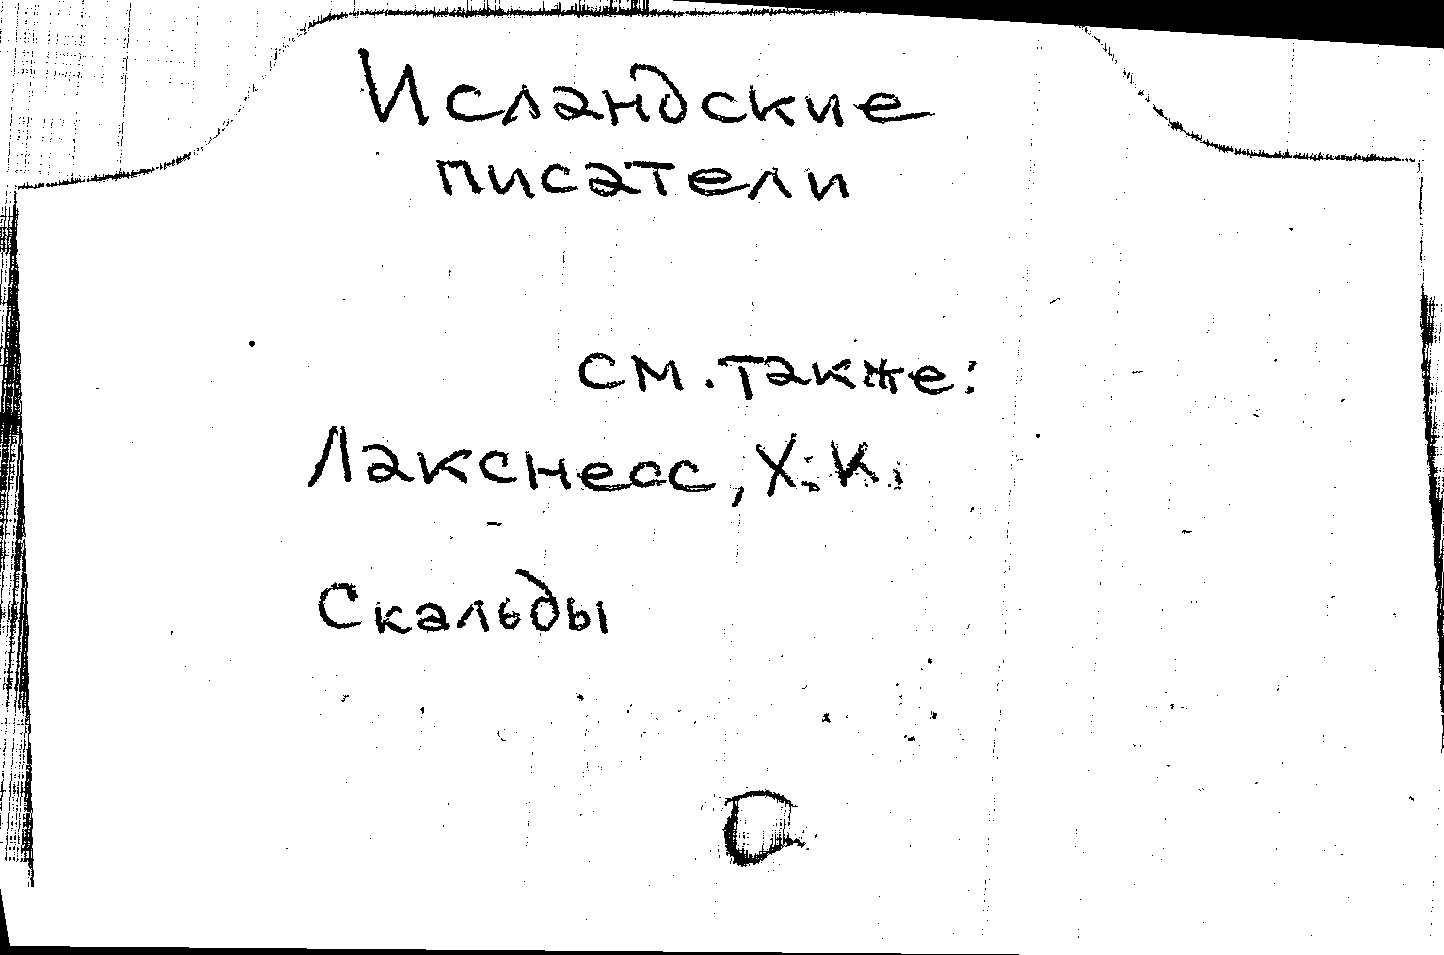 Исландские
писатели
см. также:
Лакснесс, Х. К.
Скальды